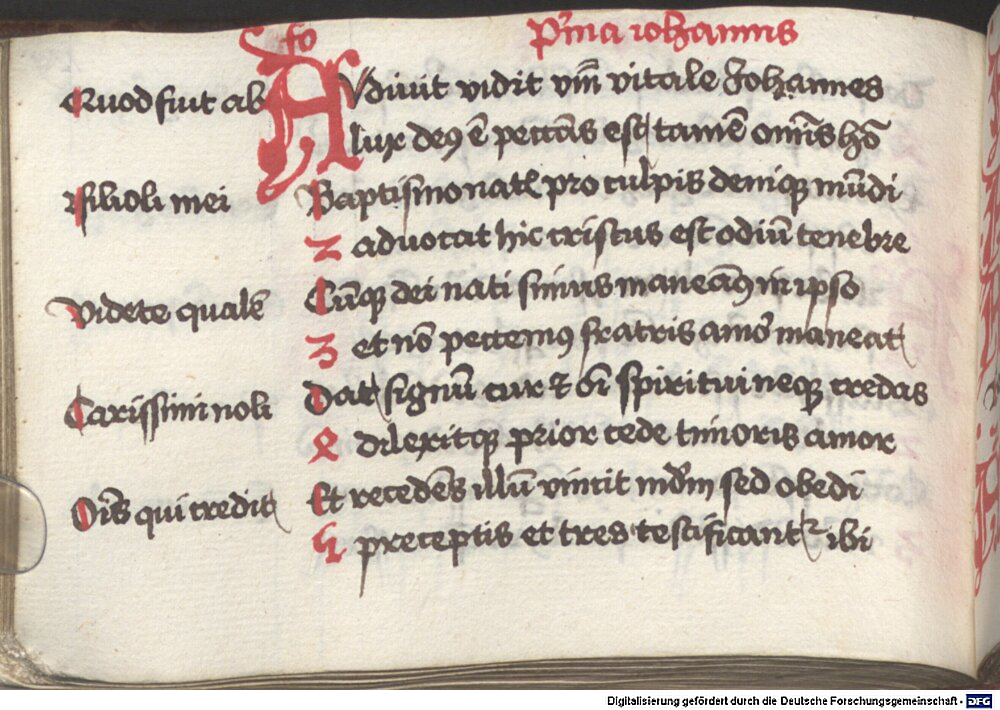 fo
Prima iohannis
Quod fuit ab
Audiuit vidit vm̄ vitale Johannes
lux deꝰ ē peccās est tamē omīs hō
Filioli mei
Baptismo nat pro culpis deniqꝫ mūdi
2 aduocat hic cristus est odiū tenebre
Videte qualē
Cūqꝫ dei nati simus maneamꝰ in ipso
3 et nō peccemꝰ fratris amor maneat
Carissimi noli
Dat signū cur et oī spiritui neqꝫ credas
4 dilexitqꝫ prior cede timoris amor
Oīs qui credit
Et recedēs illū vincit mdm̄ sed obedi
5 preceptis et tres testificantr ibi
Digitalisierung gefördert durch die Deutsche Forschungsgemeinschaft - DFG